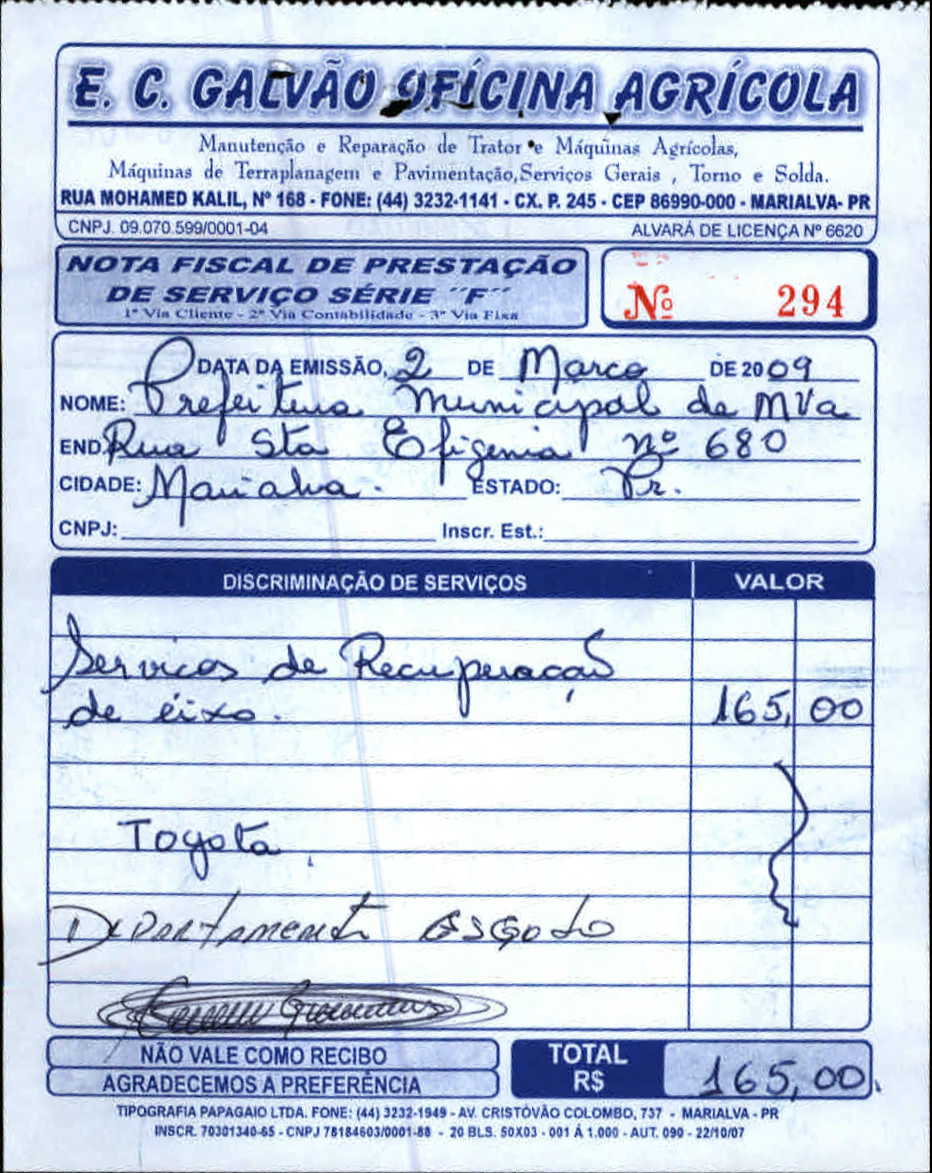 E. C. GALVÃO OFICINA AGRÍCOLA
Manutenção e Reparação de Trator e Máquinas Agrícolas,
Máquinas de Terraplanagem e Pavimentação,Serviços Gerais , Torno e Solda.
RUA MOHAMED KALIL, Nº 168 - FONE: (44) 3232-1141 - CX. P. 245 - CEP 86990-000 - MARIALVA- PR
CNPJ. 09.070.599/0001-04 ALVARÁ DE LICENÇA Nº 6620
NOTA FISCAL DE PRESTAÇÃO
DE SERVIÇO SÉRIE "F"
1ª Via Cliente - 2ª Via Contabilidade - 3ª Via Fixa
Nº 294
DATA DA EMISSÃO, 2 DE Março DE 2009
NOME: Prefeitura Municipal de MVa
END. Rua Sta Efigenia nº 680
CIDADE: Marialva. ESTADO: Pr.
CNPJ: Inscr. Est.:
DISCRIMINAÇÃO DE SERVIÇOS VALOR
Serviços de Recuperação
de eixo. 165,00
Toyota
Departamento Esgoto
NÃO VALE COMO RECIBO
AGRADECEMOS A PREFERÊNCIA
TOTAL
R$ 165,00
TIPOGRAFIA PAPAGAIO LTDA. FONE: (44) 3232-1949 - AV. CRISTÓVÃO COLOMBO, 737 - MARIALVA - PR
INSCR. 70301340-65 - CNPJ 78184603/0001-88 - 20 BLS. 50X03 - 001 Á 1.000 - AUT. 090 - 22/10/07